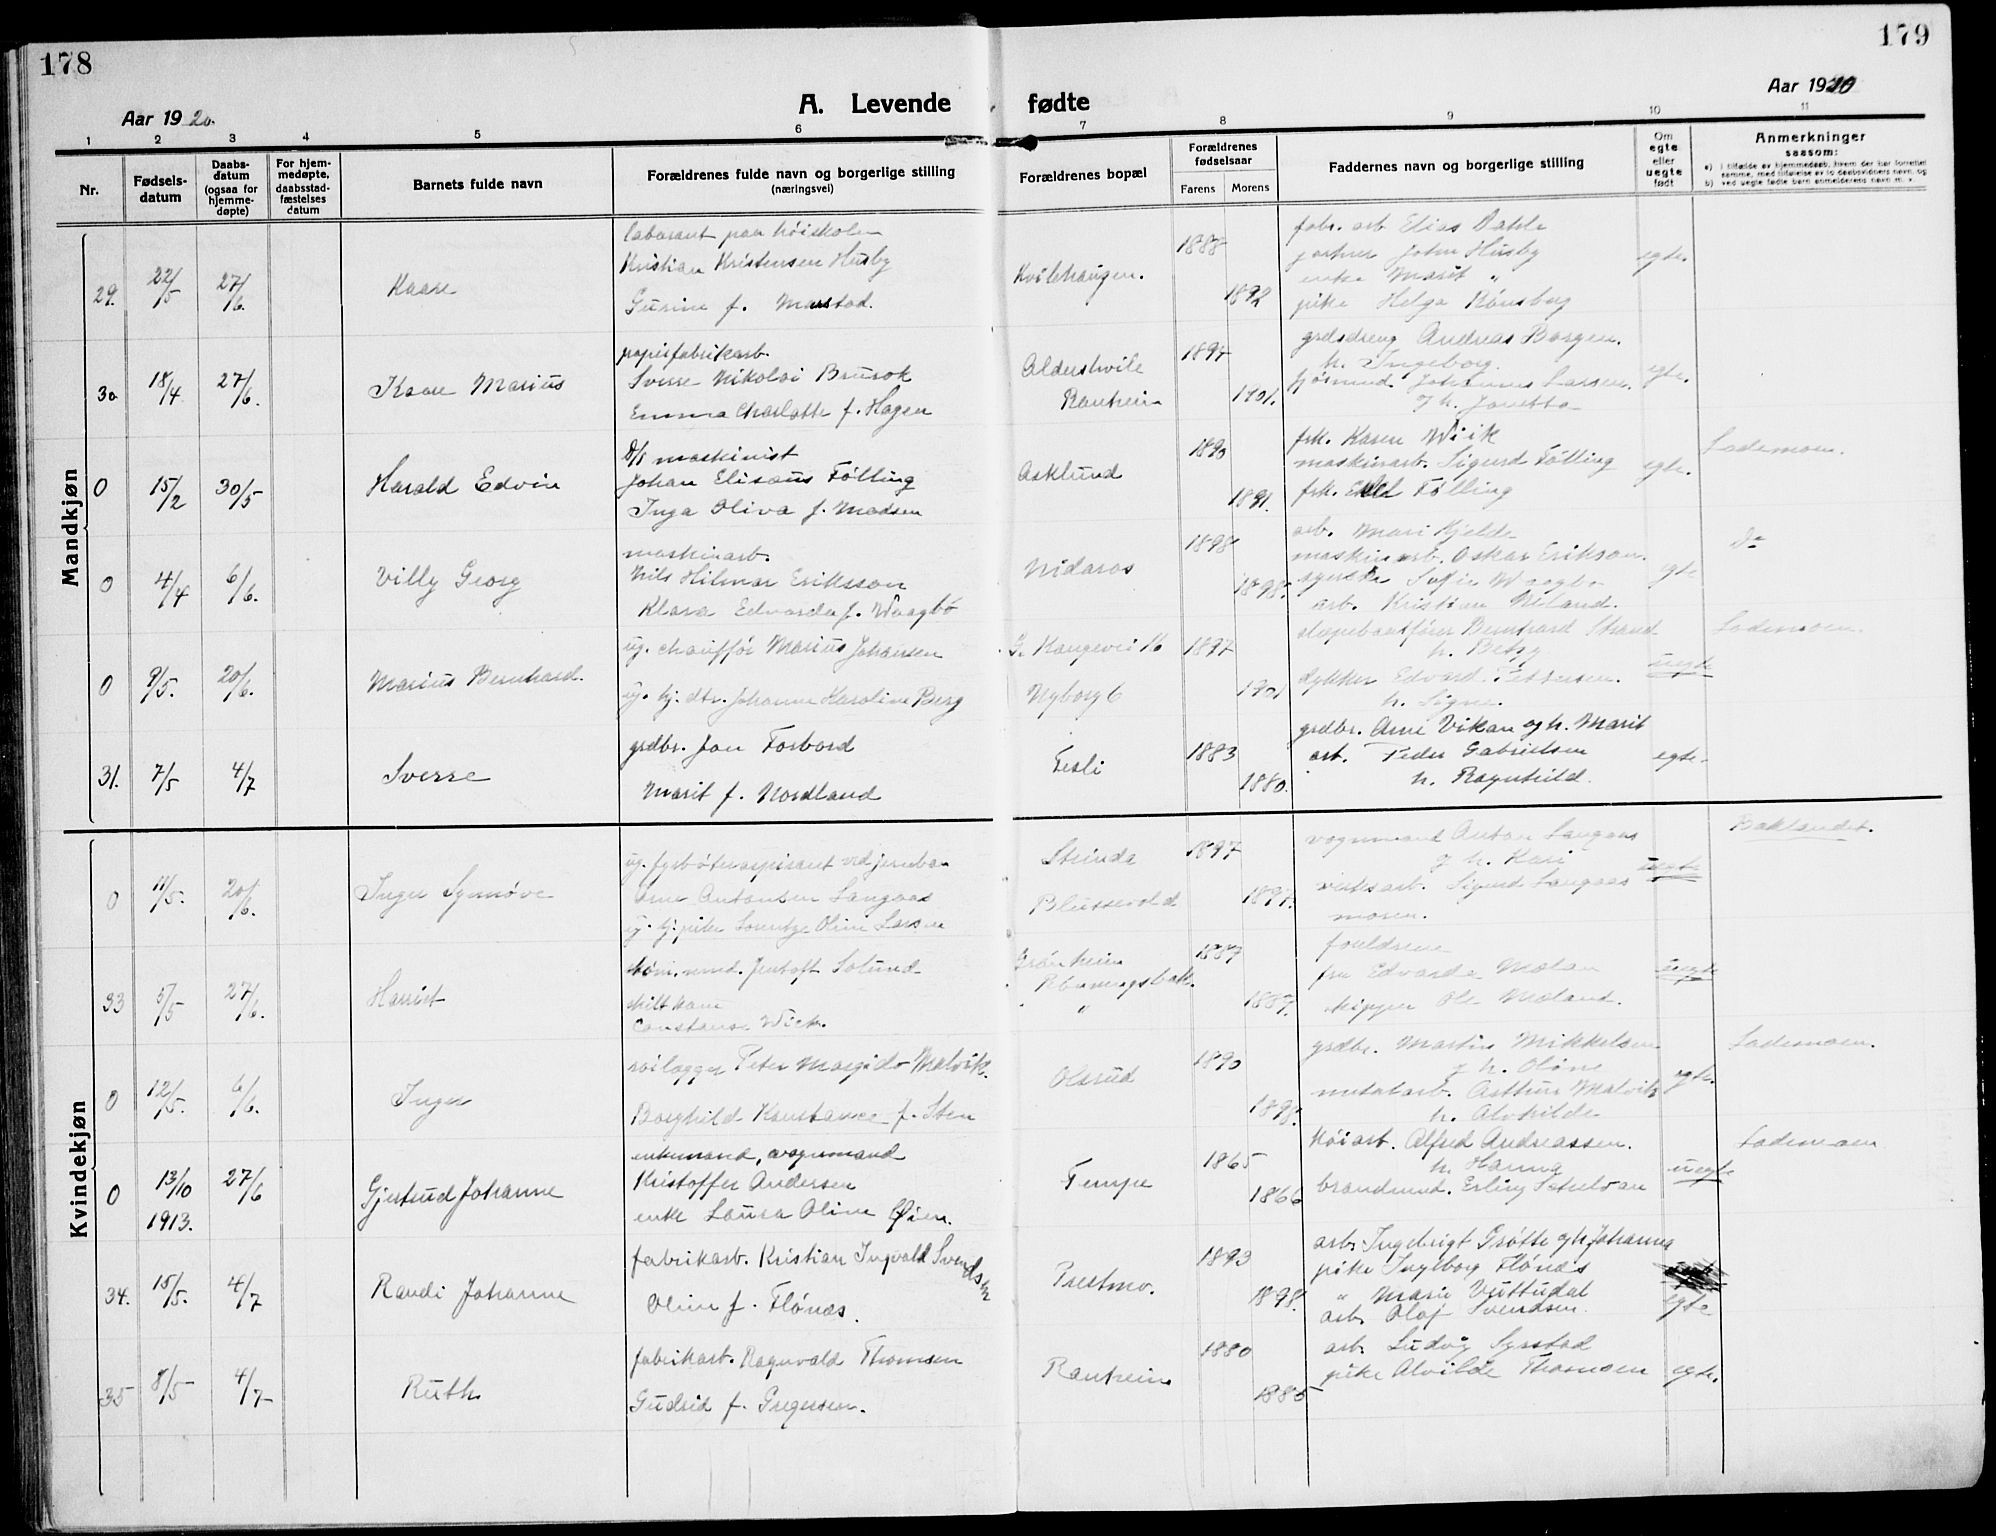 178
179
Aar 1920.
A. Levende fødte
Aar 1920
1 2 3 4 5 6 7 8 9 10 11
Nr.
Fødsels-
datum
Daabs-
datum
(ogsaa for
hjemme-
døpte)
For hjem-
medøpte,
daabsstad-
fæstelses
datum
Barnets fulde navn
Forældrenes fulde navn og borgerlige stilling
(næringsvei)
Forældrenes bopæl
Forældrenes
fødselsaar
Farens
Morens
Faddernes navn og borgerlige stilling
Om
egte
eller
uegte
født
Anmerkninger
saasom:
a) i tilfælde av hjemmedaab, hvem der har forrettet
samme, med tilføielse av to daabsvidners navn, og
b) ved uegte fødte barn anmelderens navn m. v.
Mandkjøn
29. 22/5 27/6. Kaare
laborant paa høiskolen
Kristian Kristensen Husby
Gurine f. Marstad.
Kvilehaugen.
1888
1892
fabr. arb. Elias Dahle
John Husby
enke Marit "
pike Helga Rønsberg
egte.
30 18/4 27/6. Kaare Marius
papirfabrikarb.
Sverre Nikolai Brurok
Emma Charlotte f. Hagen
Aldershvile
Ranheim
1897
1901.
grdsdreng Andreas Borgen.
h. Ingeborg.
Johannes Larsen.
og h. Janetta
egte.
0 15/2 30/5 Harald Edvin
D/S maskinist
Johan Elisæus Følling
Inga Oliva f. Madsen
Asklund
1890
1891.
frk. Karen Wiik
maskinarb. Sigurd Følling
frk. Følling
egte.
Lademoen.
0 4/4 6/6. Villy Georg
maskinarb.
Nils Hilmar Eriksson
Klara Edvarda f. Waagbø
Nidaros
1898
1898.
arb. Mari Kjelde
maskinarb. Oskar Erikson.
Sofie Waagbø
arb. Kristian
egte
Do
0 9/5. 20/6. Marius Bernhard.
ug. chauffør Marius Johansen
ug. tj. dtr. Johanne Karoline Berg
16
Nyborg 6
1897
1901
slæpebaatfører Bernhard Strand
h. Betzy
dykker Edvard Pettersen.
h. Signe.
uegte
Lademoen.
31. 7/5 4/7 Sverre
grdbr. Jon Forbord
Marit f. Nordland
Tesli
1883
1880.
grdbr. Arne Vikan og h. Marit
arb. Peder Gabrielsen
h. Ragnhild.
egte.
Kvindekjøn
0 11/5. 20/6. Inger Synnøve
ug. fyrbøteraspirant ved jernban
Arne Antonsen Langaas
ug. tj. pike Lorentze Oline Larsen
Strinda
Blussevold
1897
1897.
vognmand Anton Langaas
og h. Kari
verksarb. Sigurd Langaas
moren.
uegte
Baklandet.
33 5/5 27/6. Harriet
Jentoft Solund
skilt kone
Constanse Wick.
Grønheim
"
1887
1889.
foreldrene
fru Edvarda Mæland
skipper Ole Mæland.
uegte
0 12/5. 6/6. Inger
rørlægger Peter Margido Malvik.
Borghild Konstance f. Sten
Olsrud
1890
1898.
grdbr. Martin Mikkelsen.
og h. Oline
Arthur Malvik
h. Alvhilde
egte.
Lademoen.
0 13/10 1913. 27/6 Gjertrud Johanne
enkemand, vognmand
Kristoffer Andersen
enke Laura Oline Øien.
Tempe
1865
1866
Alfred Andreassen.
h. Hanna
brandmd. Erling
uegte
Lademoen
34. 15/5. 4/7 Randi Johanne
fabrikarb. Kristian Ingvald Svendsen
Oline f. Flønæs.
Prestmo.
1893
1898.
arb. Ingebrigt Grøtte og h. Johanna
pike Ingeborg Flønæs
" Marie Vuttudal
arb. Olaf Svendsen.
egte
35 8/5 4/7 Ruth
fabrikarb. Ragnvald Thomsen
Gudrid f. Gregersen.
Ranheim
1880
1885
arb. Ludvig Syrstad
pike Alvilde Thomsen
egte.